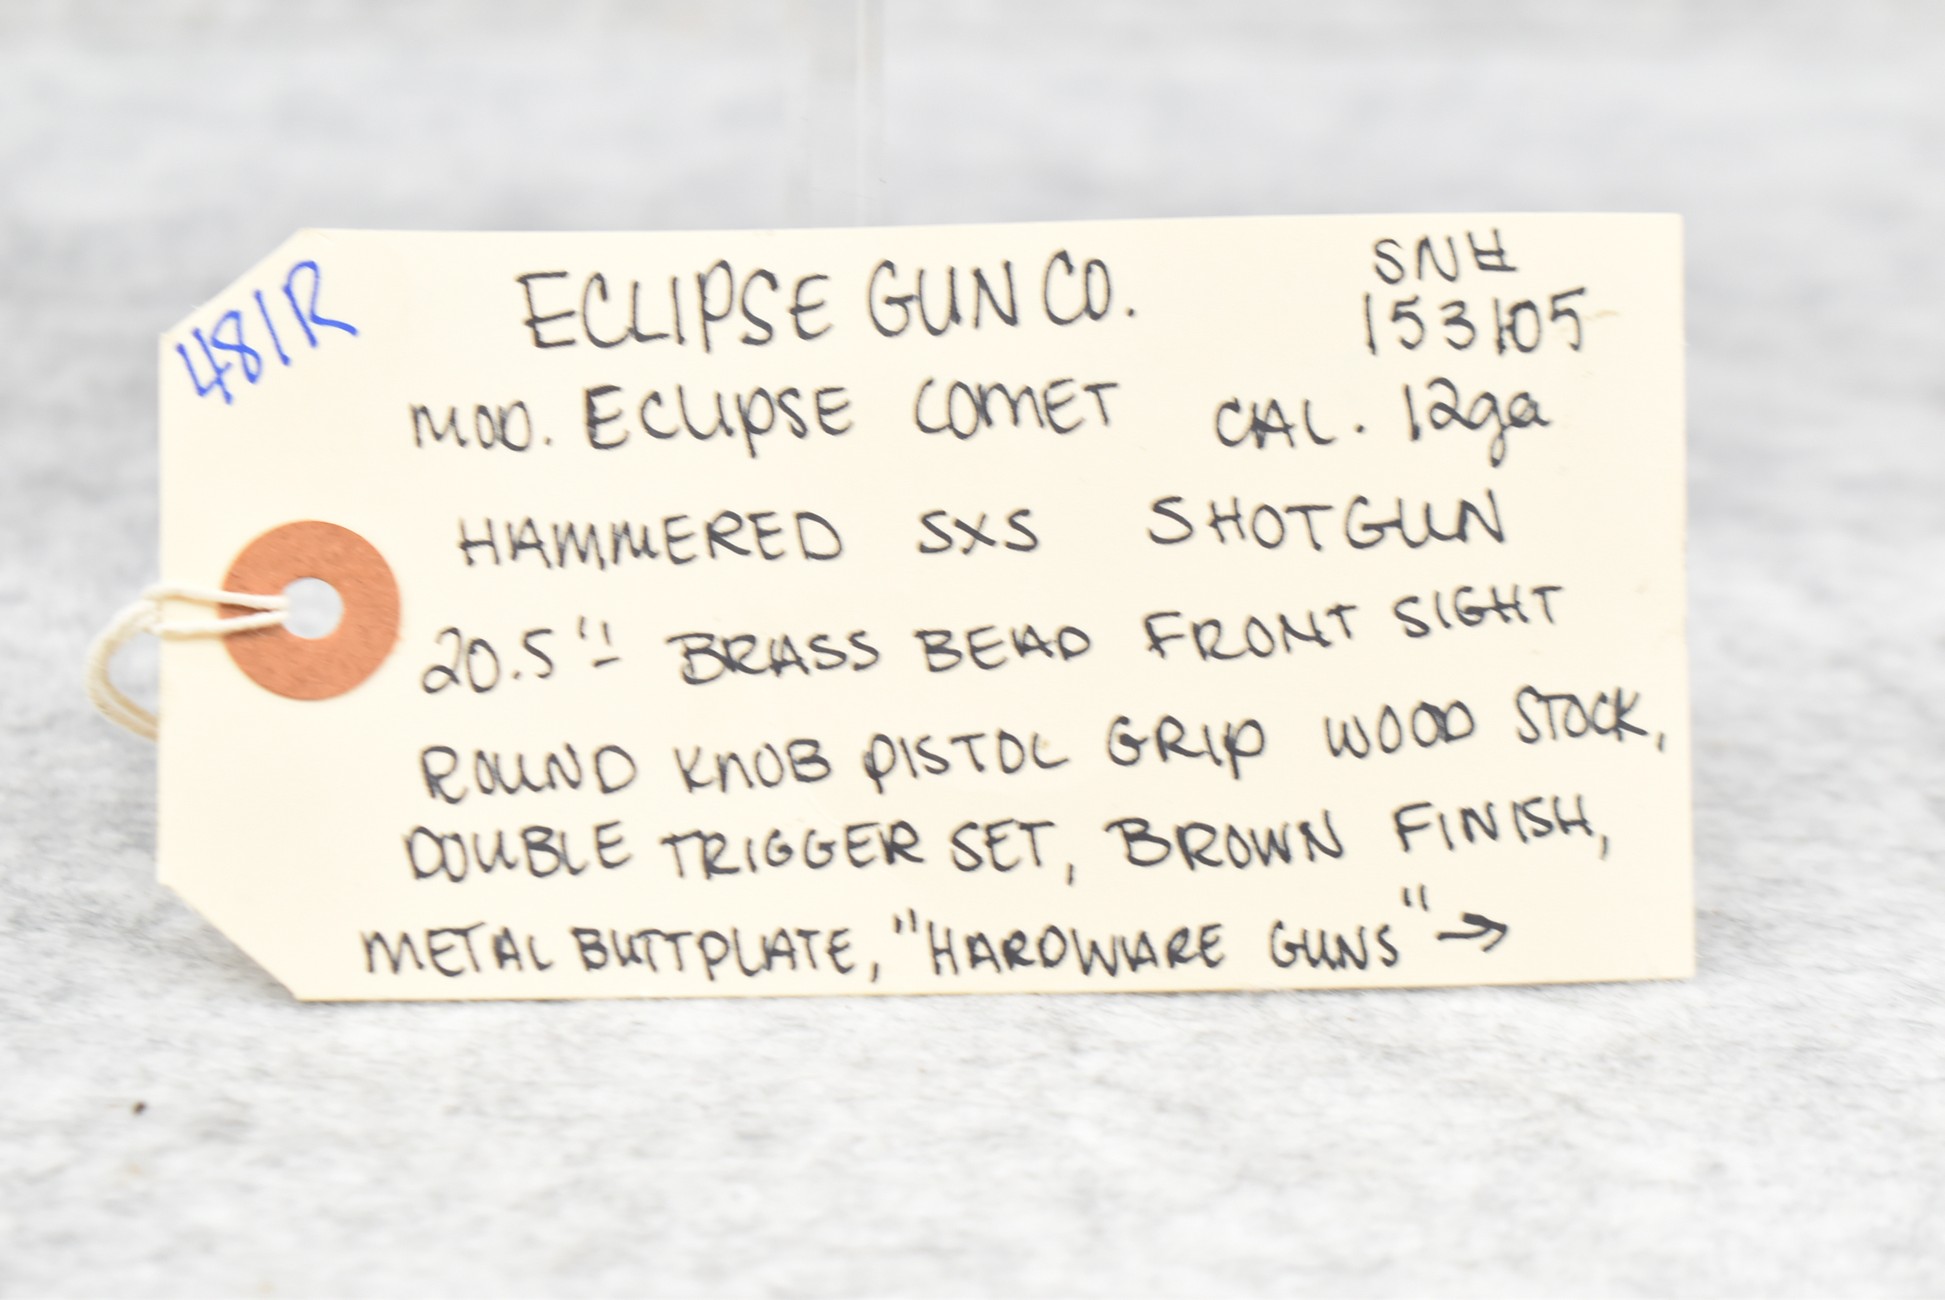 481R
ECLIPSE GUN CO.
SN#
153105
MOD. ECLIPSE COMET CAL. 12ga
HAMMERED SXS SHOTGUN
20.5" BRASS BEAD FRONT SIGHT
ROUND KNOB PISTOL GRIP WOOD STOCK,
DOUBLE TRIGGER SET, BROWN FINISH,
METAL BUTTPLATE, "HARDWARE GUNS" →